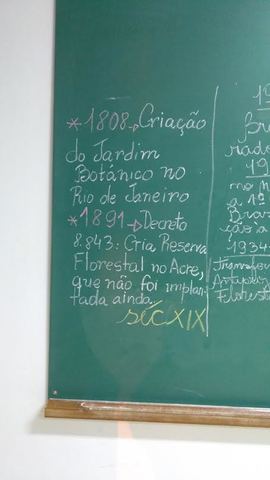 * 1808→Criação
do Jardim
Botánico no
Rio de Janeiro
* 1891→Decreto
8.843: Cria Reserva
Florestal no Acre,
que não foi implan-
tada ainda.
séc XIX
19
Bra
19
no
a 1ª
Bra
1934
Transfor